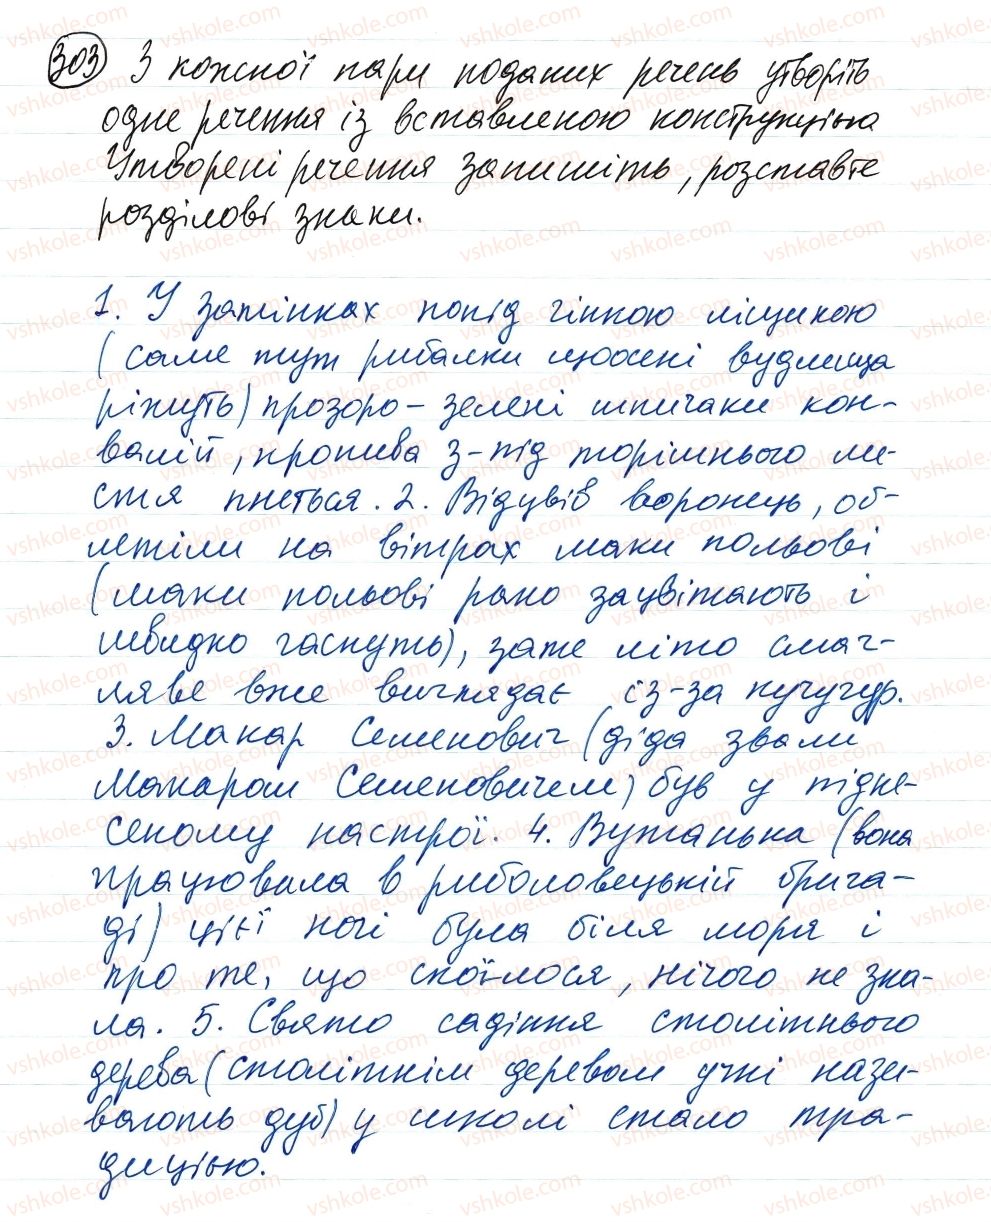 303 З кожної пари поданих речень утворіть
одне речення із вставленою конструкцією
Утворені речення запишіть, розставте
розділові знаки.
1. У затінках попід гінкою ліщиною
(саме тут рибалки щоосені вудлища
ріжуть) прозоро-зелені шпичаки кон-
валій, кропива з-під торішнього ли-
стя пнеться. 2. Відцвів воронець, об-
летіли на вітрах маки польові
(маки польові рано зацвітають і
швидко гаснуть), зате літо смаг-
ляве вже виглядає із-за кучугур.
3. Макар Семенович (діда звали
Макаром Семеновичем) був у підне-
сеному настрої. 4. Вутанька (вона
працювала в риболовецькій брига-
ді) цієї ночі була біля моря і
про те, що скоїлося, нічого не зна-
ла. 5. Свято садіння столітнього
дерева (столітнім деревом учні нази-
вають дуб) у школі стало тра-
дицією.